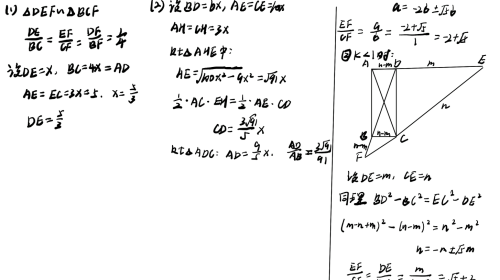 (1) △DEF∽△BCF
DE/BC = EF/CF = DF/BF = 1/4
设DE=x, BC=4x=AD
AE=EC=3x=5. x=5/3
DE=5/3
(2) 设BD=6x, AE=CE=10x
AH=CH=3x
Rt△AHE中:
AE=√(100x²-9x²)=√91x
1/2·AC·EH=1/2·AE·CD
CD=3√91/5 x
Rt△ADC: AD=9/5 x. AD/AB=3√91/91
a=-2b±√5b
EF/CF=a/b=-2+√5/1=-2+√5
②K<1时:
A n-m D m E
n
B n-m C
n-m
F
设DE=m, CE=n
同理 BD²-BC²=EC²-DE²
(m-n+m)²-(n-m)²=n²-m²
n=-n±√5m
EF/CF=DE/
=√5+2